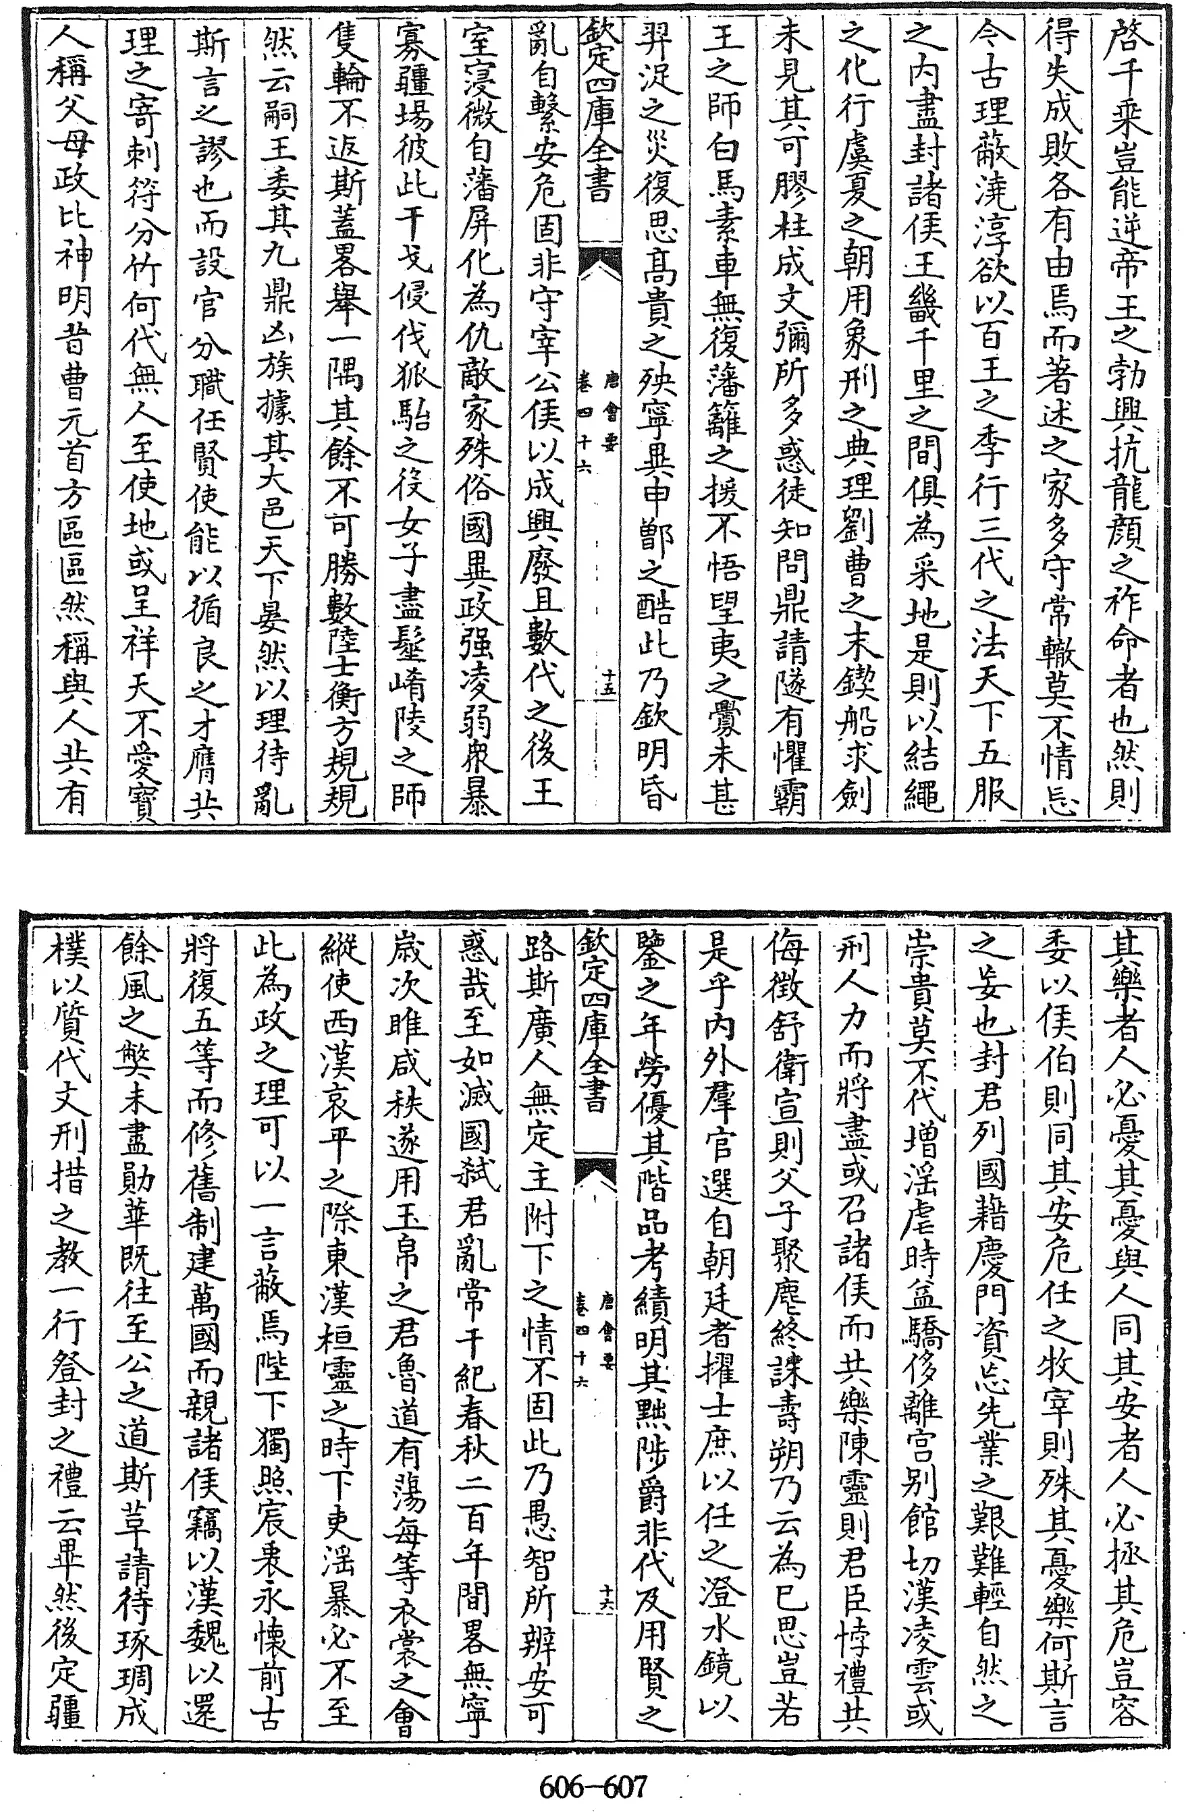 啓千乘豈能逆帝王之勃興抗龍顔之祚命者也然則
得失成敗各有由焉而著述之家多守常轍莫不情忘
今古理蔽澆淳欲以百王之季行三代之法天下五服
之内盡封諸侯王畿千里之間俱為采地是則以結繩
之化行虞夏之朝用象刑之典理劉曹之末鍥船求劍
未見其可膠柱成文彌所多惑徒知問鼎請隧有懼霸
王之師白馬素車無復藩籬之援不悟望夷之釁未甚
羿浞之災復思髙貴之殃寧異申鄫之酷此乃欽明昏
欽定四庫全書
唐會要
卷四十六
十五
亂自繫安危固非守宰公侯以成興廢且數代之後王
室寖微自藩屏化為仇敵家殊俗國異政强凌弱衆暴
寡疆埸彼此干戈侵伐狐駘之役女子盡髽崤陵之師
隻輪不返斯蓋畧舉一隅其餘不可勝數陸士衡方規規
然云嗣王委其九鼎凶族據其大邑天下晏然以理待亂
斯言之謬也而設官分職任賢使能以循良之才膺共
理之寄刺符分竹何代無人至使地或呈祥天不愛寶
人稱父母政比神明昔曹元首方區區然稱與人共有
其樂者人必憂其憂與人同其安者人必拯其危豈容
委以侯伯則同其安危任之牧宰則殊其憂樂何斯言
之妄也封君列國藉慶門資忘先業之艱難輕自然之
崇貴莫不代增滛虐時益驕侈離宫别館切漢凌雲或
刑人力而將盡或召諸侯而共樂陳靈則君臣悖禮共
侮徵舒衛宣則父子聚麀終誅壽朔乃云為已思豈若
是乎内外羣官選自朝廷者擢士庶以任之澄水鏡以
鑒之年勞優其階品考績明其黜陟爵非代及用賢之
欽定四庫全書
唐會要
卷四十六
十六
路斯廣人無定主附下之情不固此乃愚智所辨安可
惑哉至如滅國弑君亂常干紀春秋二百年間畧無寧
歳次睢咸秩遂用玉帛之君魯道有蕩每等衣裳之會
縱使西漢哀平之際東漢桓靈之時下吏滛暴必不至
此為政之理可以一言蔽焉陛下獨照宸衷永懷前古
將復五等而修舊制建萬國而親諸侯竊以漢魏以還
餘風之弊未盡勛華既往至公之道斯革請待琢琱成
樸以質代文刑措之教一行登封之禮云畢然後定疆
606—607